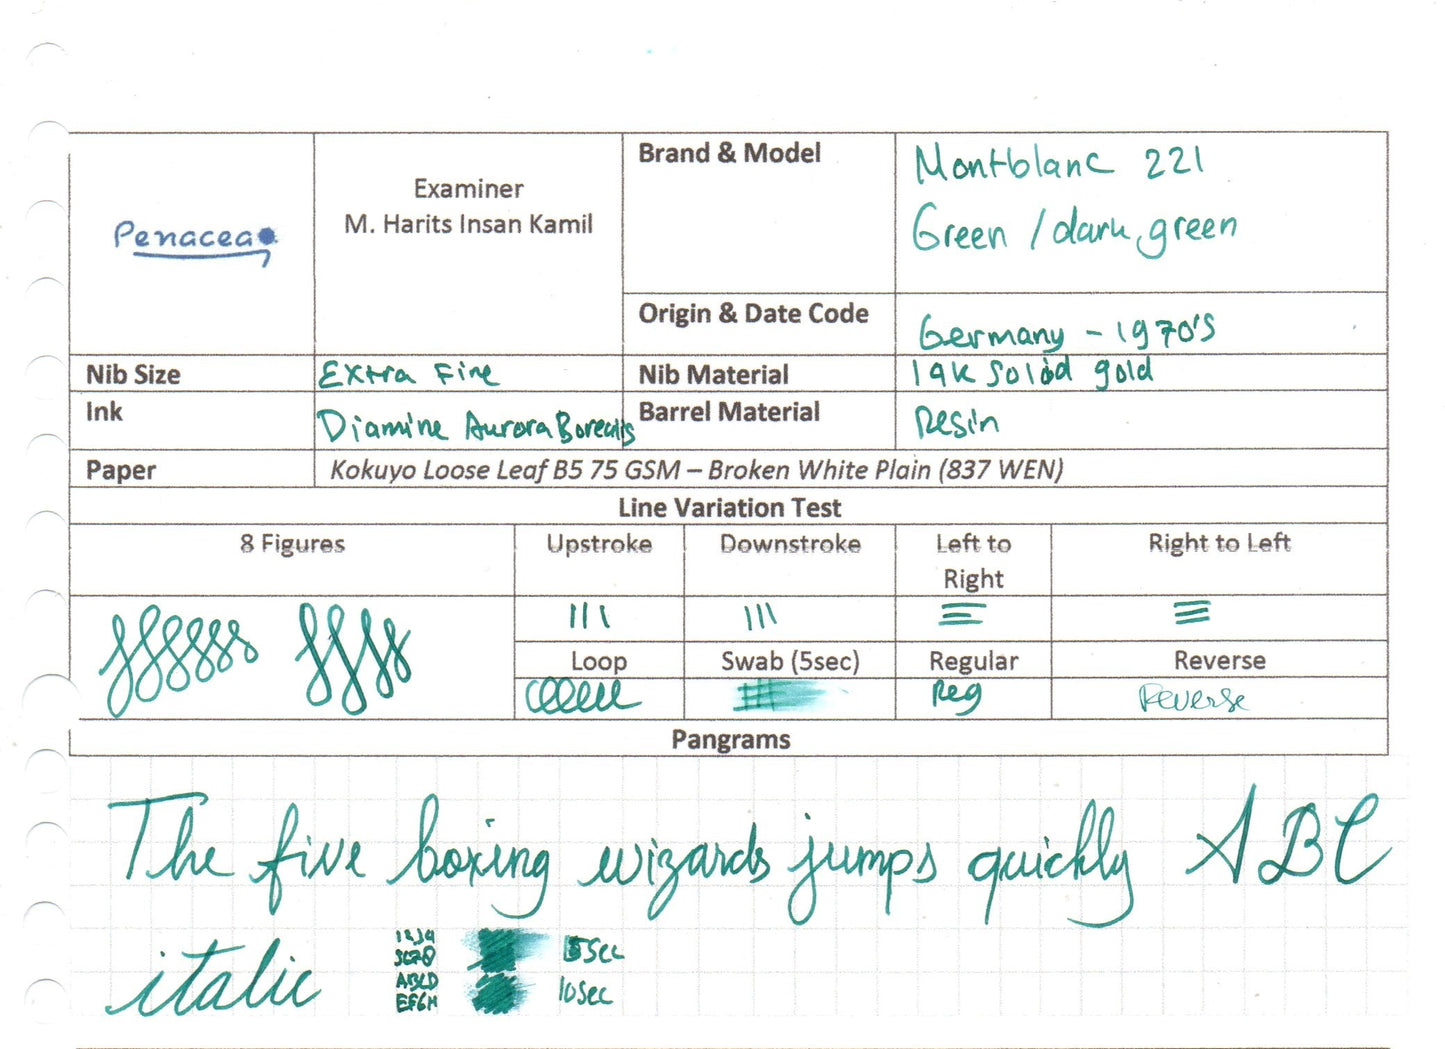 Penacea
Examiner
M. Harits Insan Kamil
Brand & Model
Montblanc 221
Green / dark green
Origin & Date Code
Germany - 1970's
Nib Size
Extra Fine
Nib Material
14K Solid gold
Ink
Diamine Aurora Borealis
Barrel Material
Resin
Paper
Kokuyo Loose Leaf B5 75 GSM – Broken White Plain (837 WEN)
Line Variation Test
8 Figures
Upstroke
Downstroke
Left to
Right
Right to Left
Loop
Swab (5sec)
Regular
Reverse
Reg
Reverse
Pangrams
The five boxing wizards jumps quickly ABC
italic
1234
5678
ABCD
EFGH
5sec
10sec